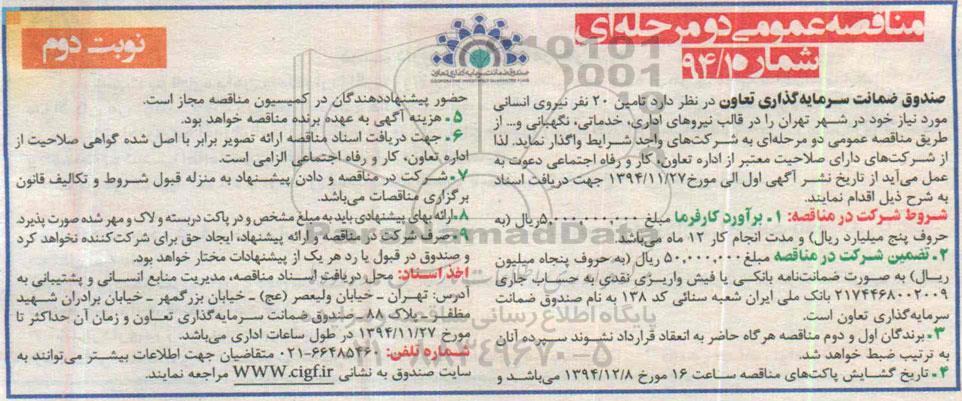 مناقصه عمومی دو مرحله‌ای
شماره ۹۴/۱
نوبت دوم
صندوق ضمانت سرمایه‌گذاری تعاون
COOPERATIVE INVESTMENT GUARANTEE FUND
صندوق ضمانت سرمایه‌گذاری تعاون در نظر دارد تامین ۲۰ نفر نیروی انسانی
مورد نیاز خود در شهر تهران را در قالب نیروهای اداری، خدماتی، نگهبانی و... از
طریق مناقصه عمومی دو مرحله‌ای به شرکت‌های واجد شرایط واگذار نماید. لذا
از شرکت‌های دارای صلاحیت معتبر از اداره تعاون، کار و رفاه اجتماعی دعوت به
عمل می‌آید از تاریخ نشر آگهی اول الی مورخ ۱۳۹۴/۱۱/۲۷ جهت دریافت اسناد
به شرح ذیل اقدام نمایند.
شروط شرکت در مناقصه: ۱ـ برآورد کارفرما مبلغ ۵,۰۰۰,۰۰۰,۰۰۰ ریال (به
حروف پنج میلیارد ریال) و مدت انجام کار ۱۲ ماه می‌باشد.
۲ـ تضمین شرکت در مناقصه مبلغ ۵۰,۰۰۰,۰۰۰ ریال (به حروف پنجاه میلیون
ریال) به صورت ضمانت‌نامه بانکی یا فیش واریزی نقدی به حساب جاری
۲۱۷۴۴۶۸۰۰۲۰۰۹ بانک ملی ایران شعبه سنائی کد ۱۳۸ به نام صندوق ضمانت
سرمایه‌گذاری تعاون است.
۳ـ برندگان اول و دوم مناقصه هرگاه حاضر به انعقاد قرارداد نشوند سپرده آنان
به ترتیب ضبط خواهد شد.
۴ـ تاریخ گشایش پاکت‌های مناقصه ساعت ۱۶ مورخ ۱۳۹۴/۱۲/۸ می‌باشد و
حضور پیشنهاددهندگان در کمیسیون مناقصه مجاز است.
۵ـ هزینه آگهی به عهده برنده مناقصه خواهد بود.
۶ـ جهت دریافت اسناد مناقصه ارائه تصویر برابر با اصل شده گواهی صلاحیت از
اداره تعاون، کار و رفاه اجتماعی الزامی است.
۷ـ شرکت در مناقصه و دادن پیشنهاد به منزله قبول شروط و تکالیف قانون
برگزاری مناقصات می‌باشد.
۸ـ ارائه بهای پیشنهادی باید به مبلغ مشخص و در پاکت دربسته و لاک و مهر شده صورت پذیرد.
۹ـ صرف شرکت در مناقصه و ارائه پیشنهاد، ایجاد حق برای شرکت‌کننده نخواهد کرد
و صندوق در قبول یا رد هر یک از پیشنهادات مختار خواهد بود.
اخذ اسناد: محل دریافت اسناد مناقصه، مدیریت منابع انسانی و پشتیبانی به
آدرس: تهران ـ خیابان ولیعصر (عج) ـ خیابان بزرگمهر ـ خیابان برادران شهید
مظفر ـ پلاک ۸۸ ـ صندوق ضمانت سرمایه‌گذاری تعاون و زمان آن حداکثر تا
مورخ ۱۳۹۴/۱۱/۲۷ در طول ساعات اداری می‌باشد.
شماره تلفن: ۶۶۴۸۵۴۶۰-۰۲۱ متقاضیان جهت اطلاعات بیشتر می‌توانند به
سایت صندوق به نشانی WWW.cigf.ir مراجعه نمایند.
ParsNamadData
پایگاه اطلاع رسانی